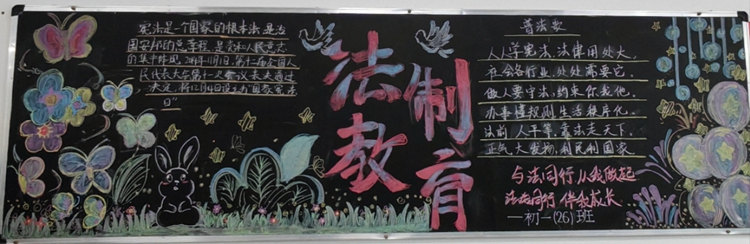 宪法是一个国家的根本法是治
国安邦的总章程,是党和人民意志
的集中体现,2014年11月1日,第十二届全国人
民代表大会第十一次会议表决通过
决定,将12月4日设立为"国家宪法
日"
法制
教育
普法歌
人人学宪法,法律用处大,
社会各行业,处处需要它,
做人要守法,约束你我他,
办事懂规则,生活秩序化,
法前人平等,靠法走天下,
正气大发扬,利民利国家
与法同行 从我做起
法治同行 伴我成长
——初一(26)班